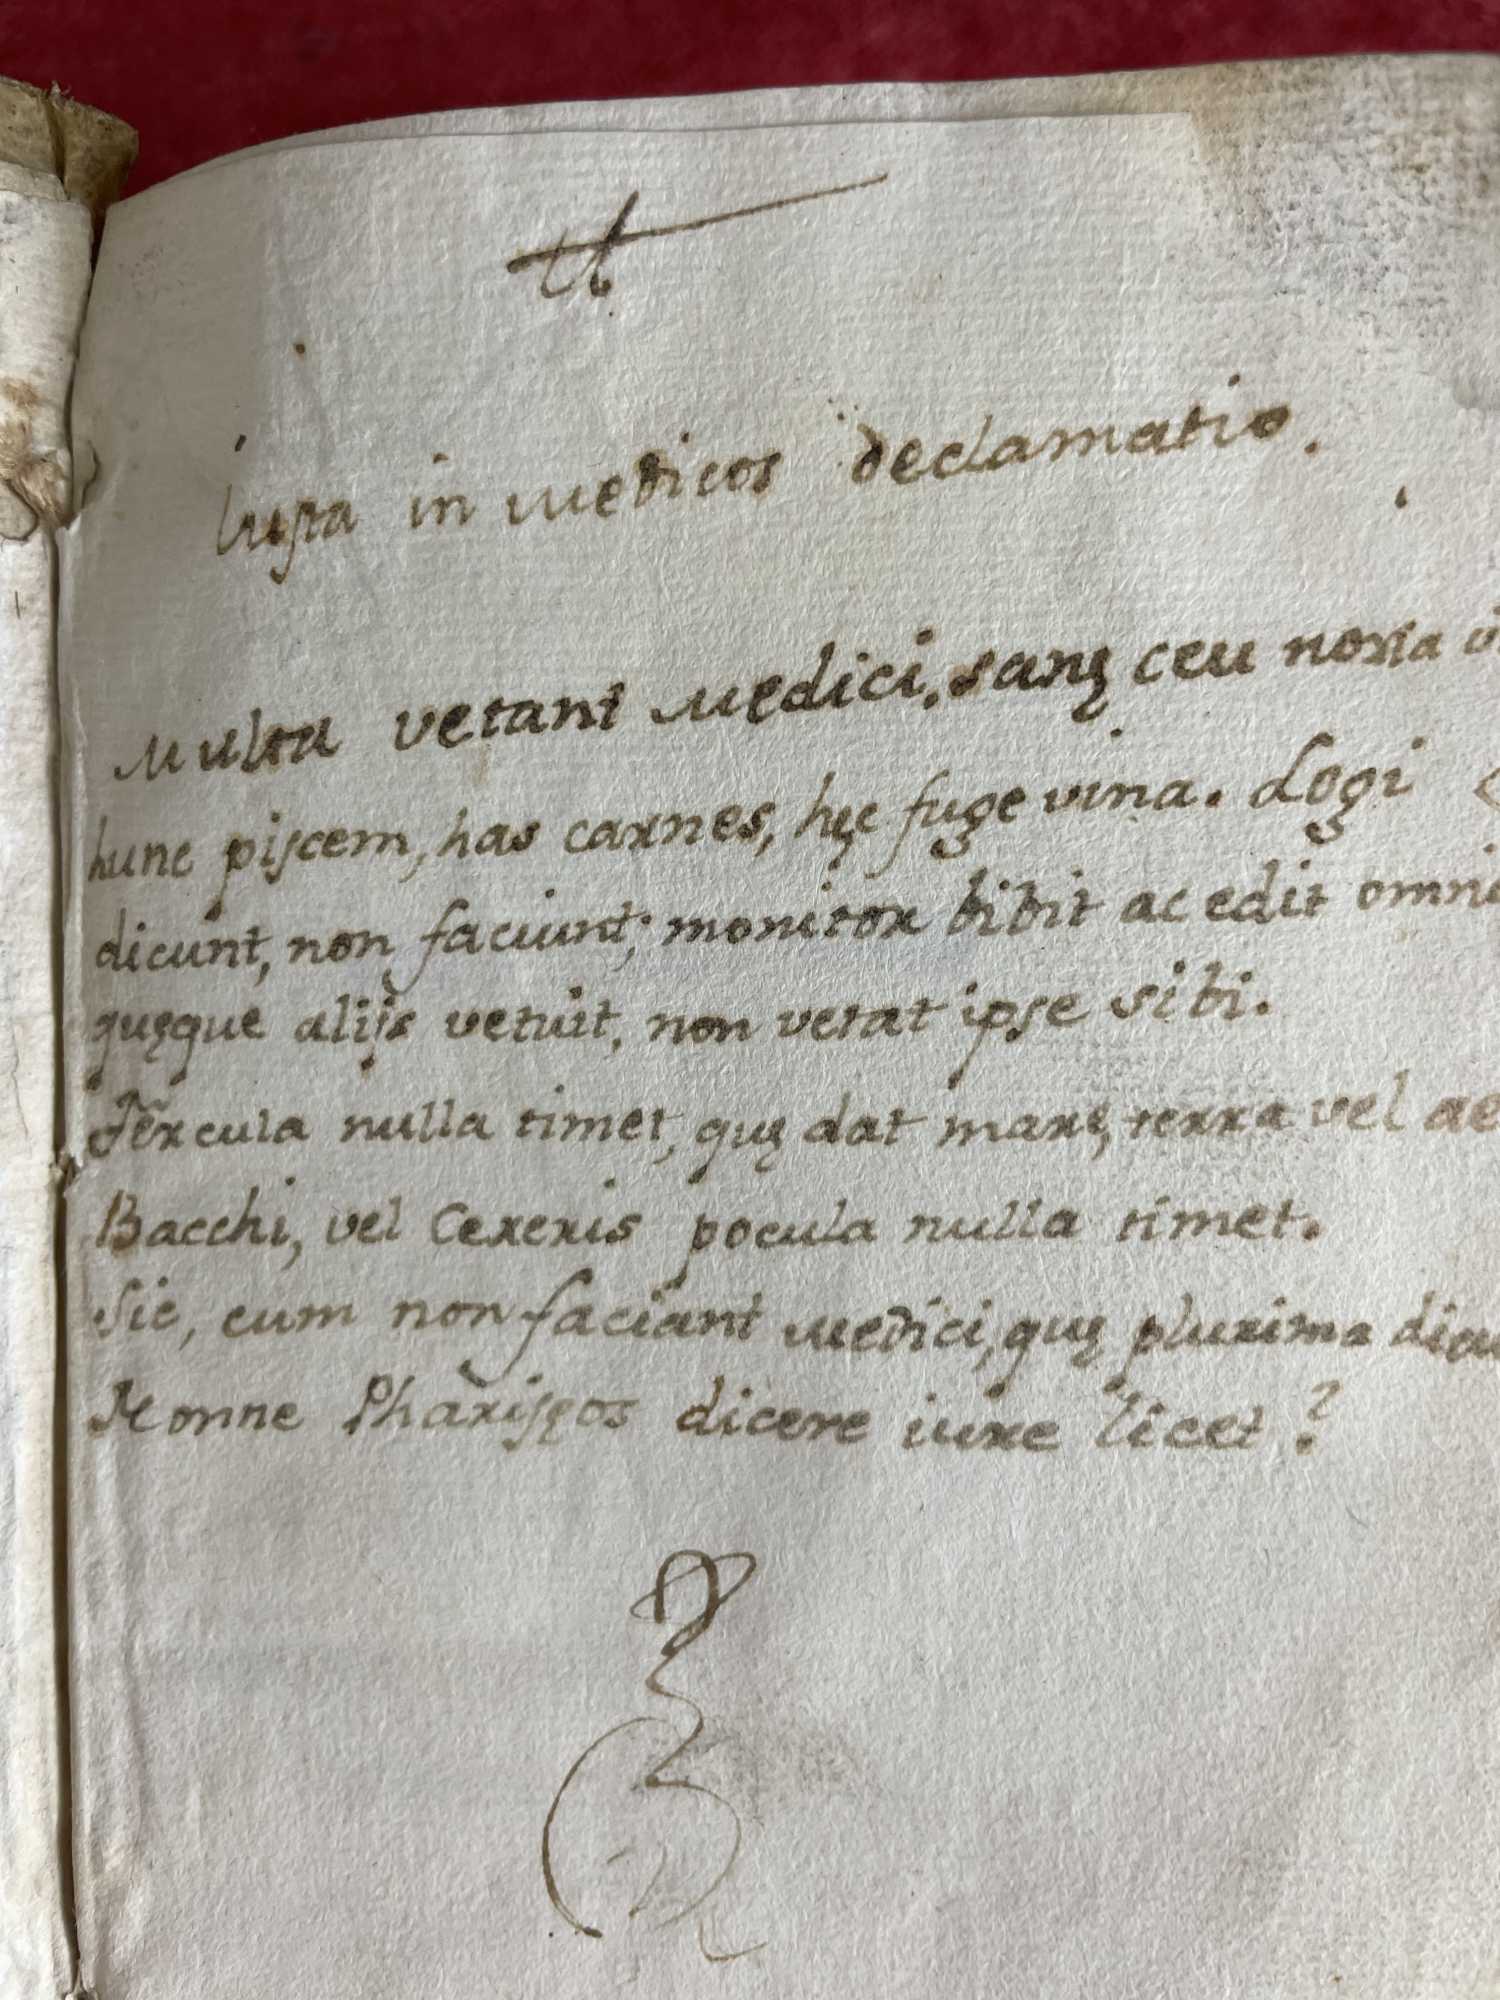 Iusta in Medicos declamatio.
Multa vetant Medici, sanę ceu noxia
hunc piscem, has carnes, hęc fuge vina. Logi
dicunt, non faciunt; monitor bibit ac edit
quęque alijs vetuit, non vetat ipse sibi.
Fercula nulla timet, quę dat mare, terra vel
Bacchi, vel Cereris pocula nulla timet.
Sic, cum non faciant Medici, quę plurima
Nonne Pharisęos dicere iure licet?